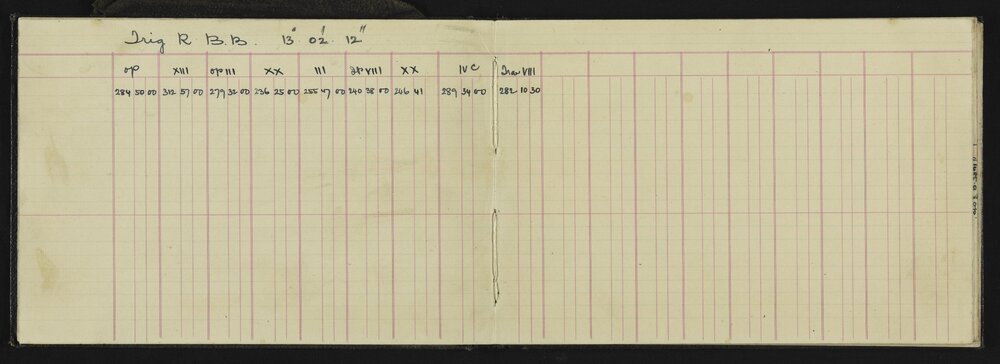 Trig R B.B. 13° 02' 12"
OP XIII OP III XX III XX IV C Tra VIII
284 50 00 312 57 00 279 32 00 236 25 00 255 47 00 240 38 00 246 41 289 34 00 282 10 30